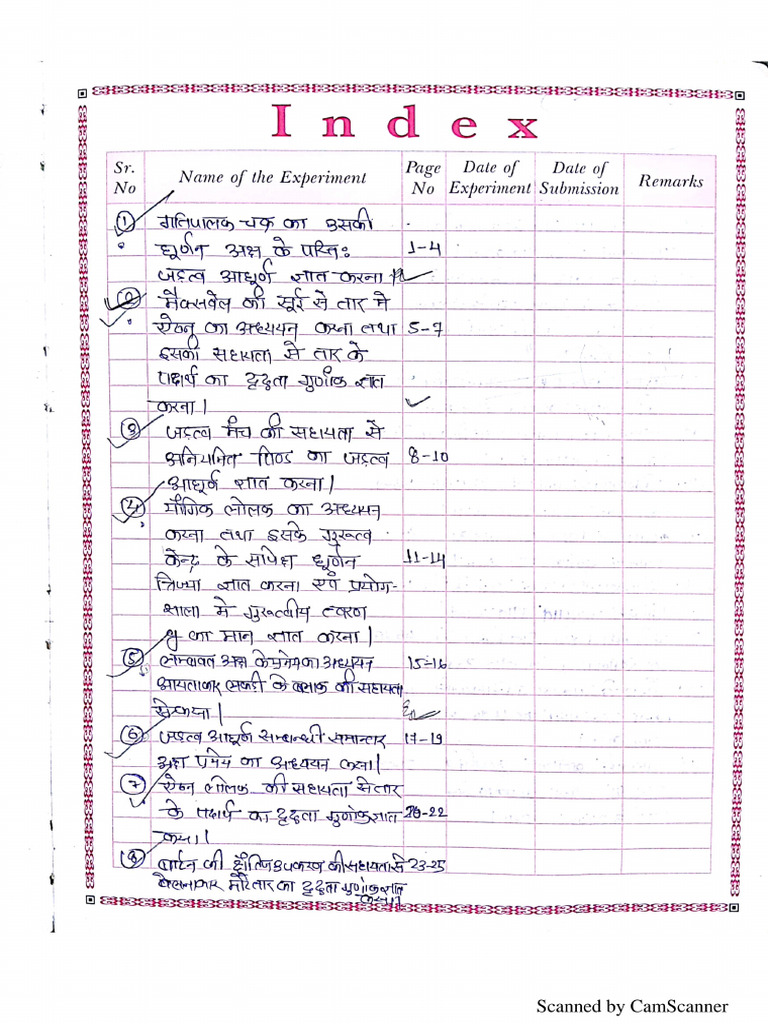 Index
Sr. No
Name of the Experiment
Page No
Date of Experiment
Date of Submission
Remarks
① गतिपालक चक्र का उसकी
घूर्णन अक्ष के परितः 1-4
जड़त्व आघूर्ण ज्ञात करना।
② मैक्सवेल की सुई से तार मे
ऐंठन का अध्ययन करना तथा 5-7
इसकी सहायता से तार के
पदार्थ का दृढ़ता गुणांक ज्ञात
करना।
③ जड़त्व मंच की सहायता से
अनियमित पिण्ड का जड़त्व 8-10
आघूर्ण ज्ञात करना।
④ यौगिक लोलक का अध्ययन
करना तथा इसके गुरुत्व
केन्द्र के सापेक्ष घूर्णन 11-14
त्रिज्या ज्ञात करना एवं प्रयोग-
शाला मे गुरुत्वीय त्वरण
g का मान ज्ञात करना।
⑤ लम्बवत अक्ष के प्रमेय का अध्ययन 15-16
आयताकार लकड़ी के ब्लाक की सहायता
से करना।
⑥ जड़त्व आघूर्ण सम्बन्धी समान्तर 17-19
अक्ष प्रमेय का अध्ययन करना।
⑦ ऐंठन लोलक की सहायता से तार
के पदार्थ का दृढ़ता गुणांक ज्ञात 20-22
करना।
⑧ बार्टन की क्षैतिज उपकरण की सहायता से 23-25
बेलनाकार तार का दृढ़ता गुणांक ज्ञात
करना।
Scanned by CamScanner